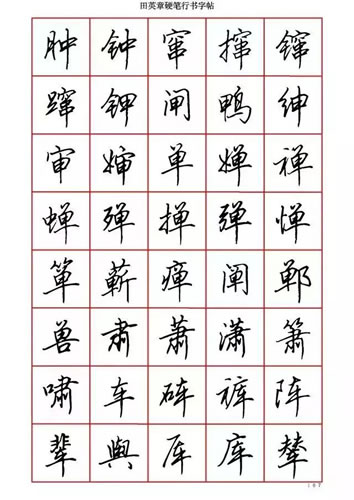 田英章硬笔行书字帖
肿 钟 窜 撺 镩
蹿 钾 闸 鸭 绅
审 婶 单 婵 禅
蝉 殚 掸 弹 惮
箪 蕲 瘅 阐 郸
兽 肃 萧 潇 箫
啸 车 砗 裤 阵
辈 舆 厍 库 辇